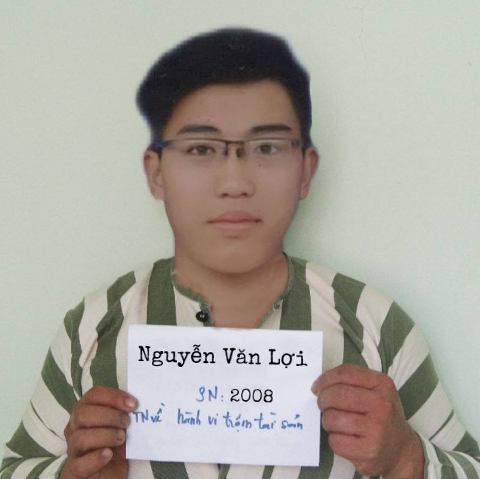 Nguyễn Văn Lợi
SN: 2008
TN về hành vi trộm tài sản